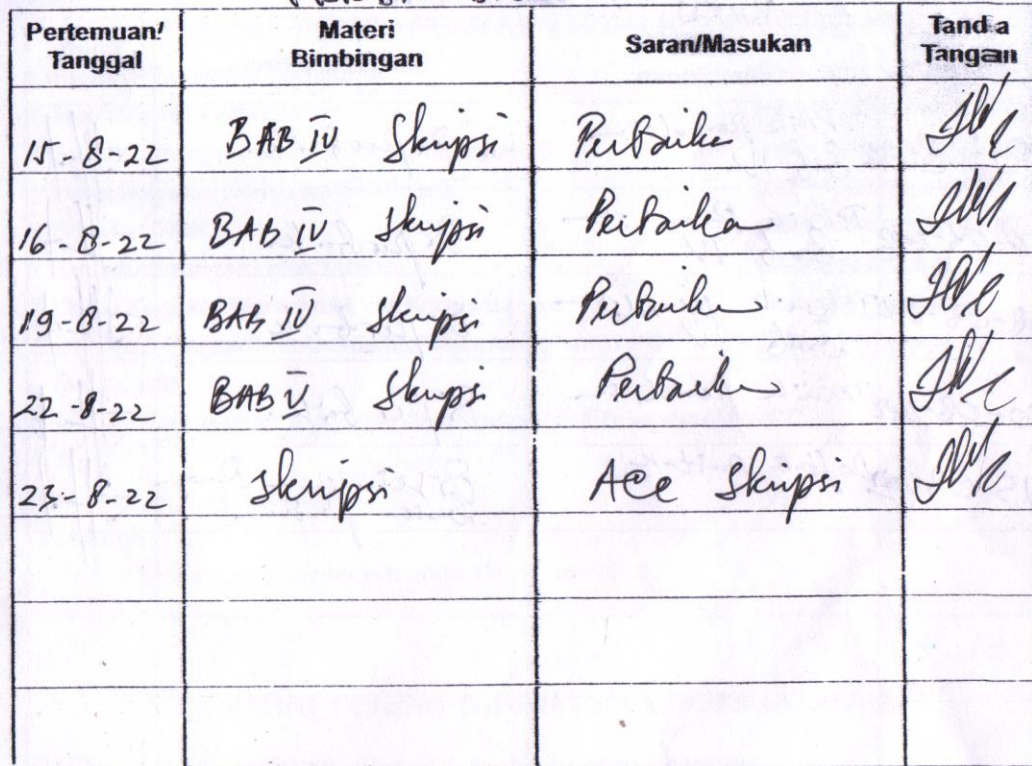 Pertemuan/ Tanggal Materi Bimbingan Saran/Masukan Tanda Tangan
15-8-22 BAB IV Skripsi Perbaikan
16-8-22 BAB IV Skripsi Perbaikan
19-8-22 BAB IV Skripsi Perbaikan
22-8-22 BAB V Skripsi Perbaikan
23-8-22 Skripsi Acc Skripsi